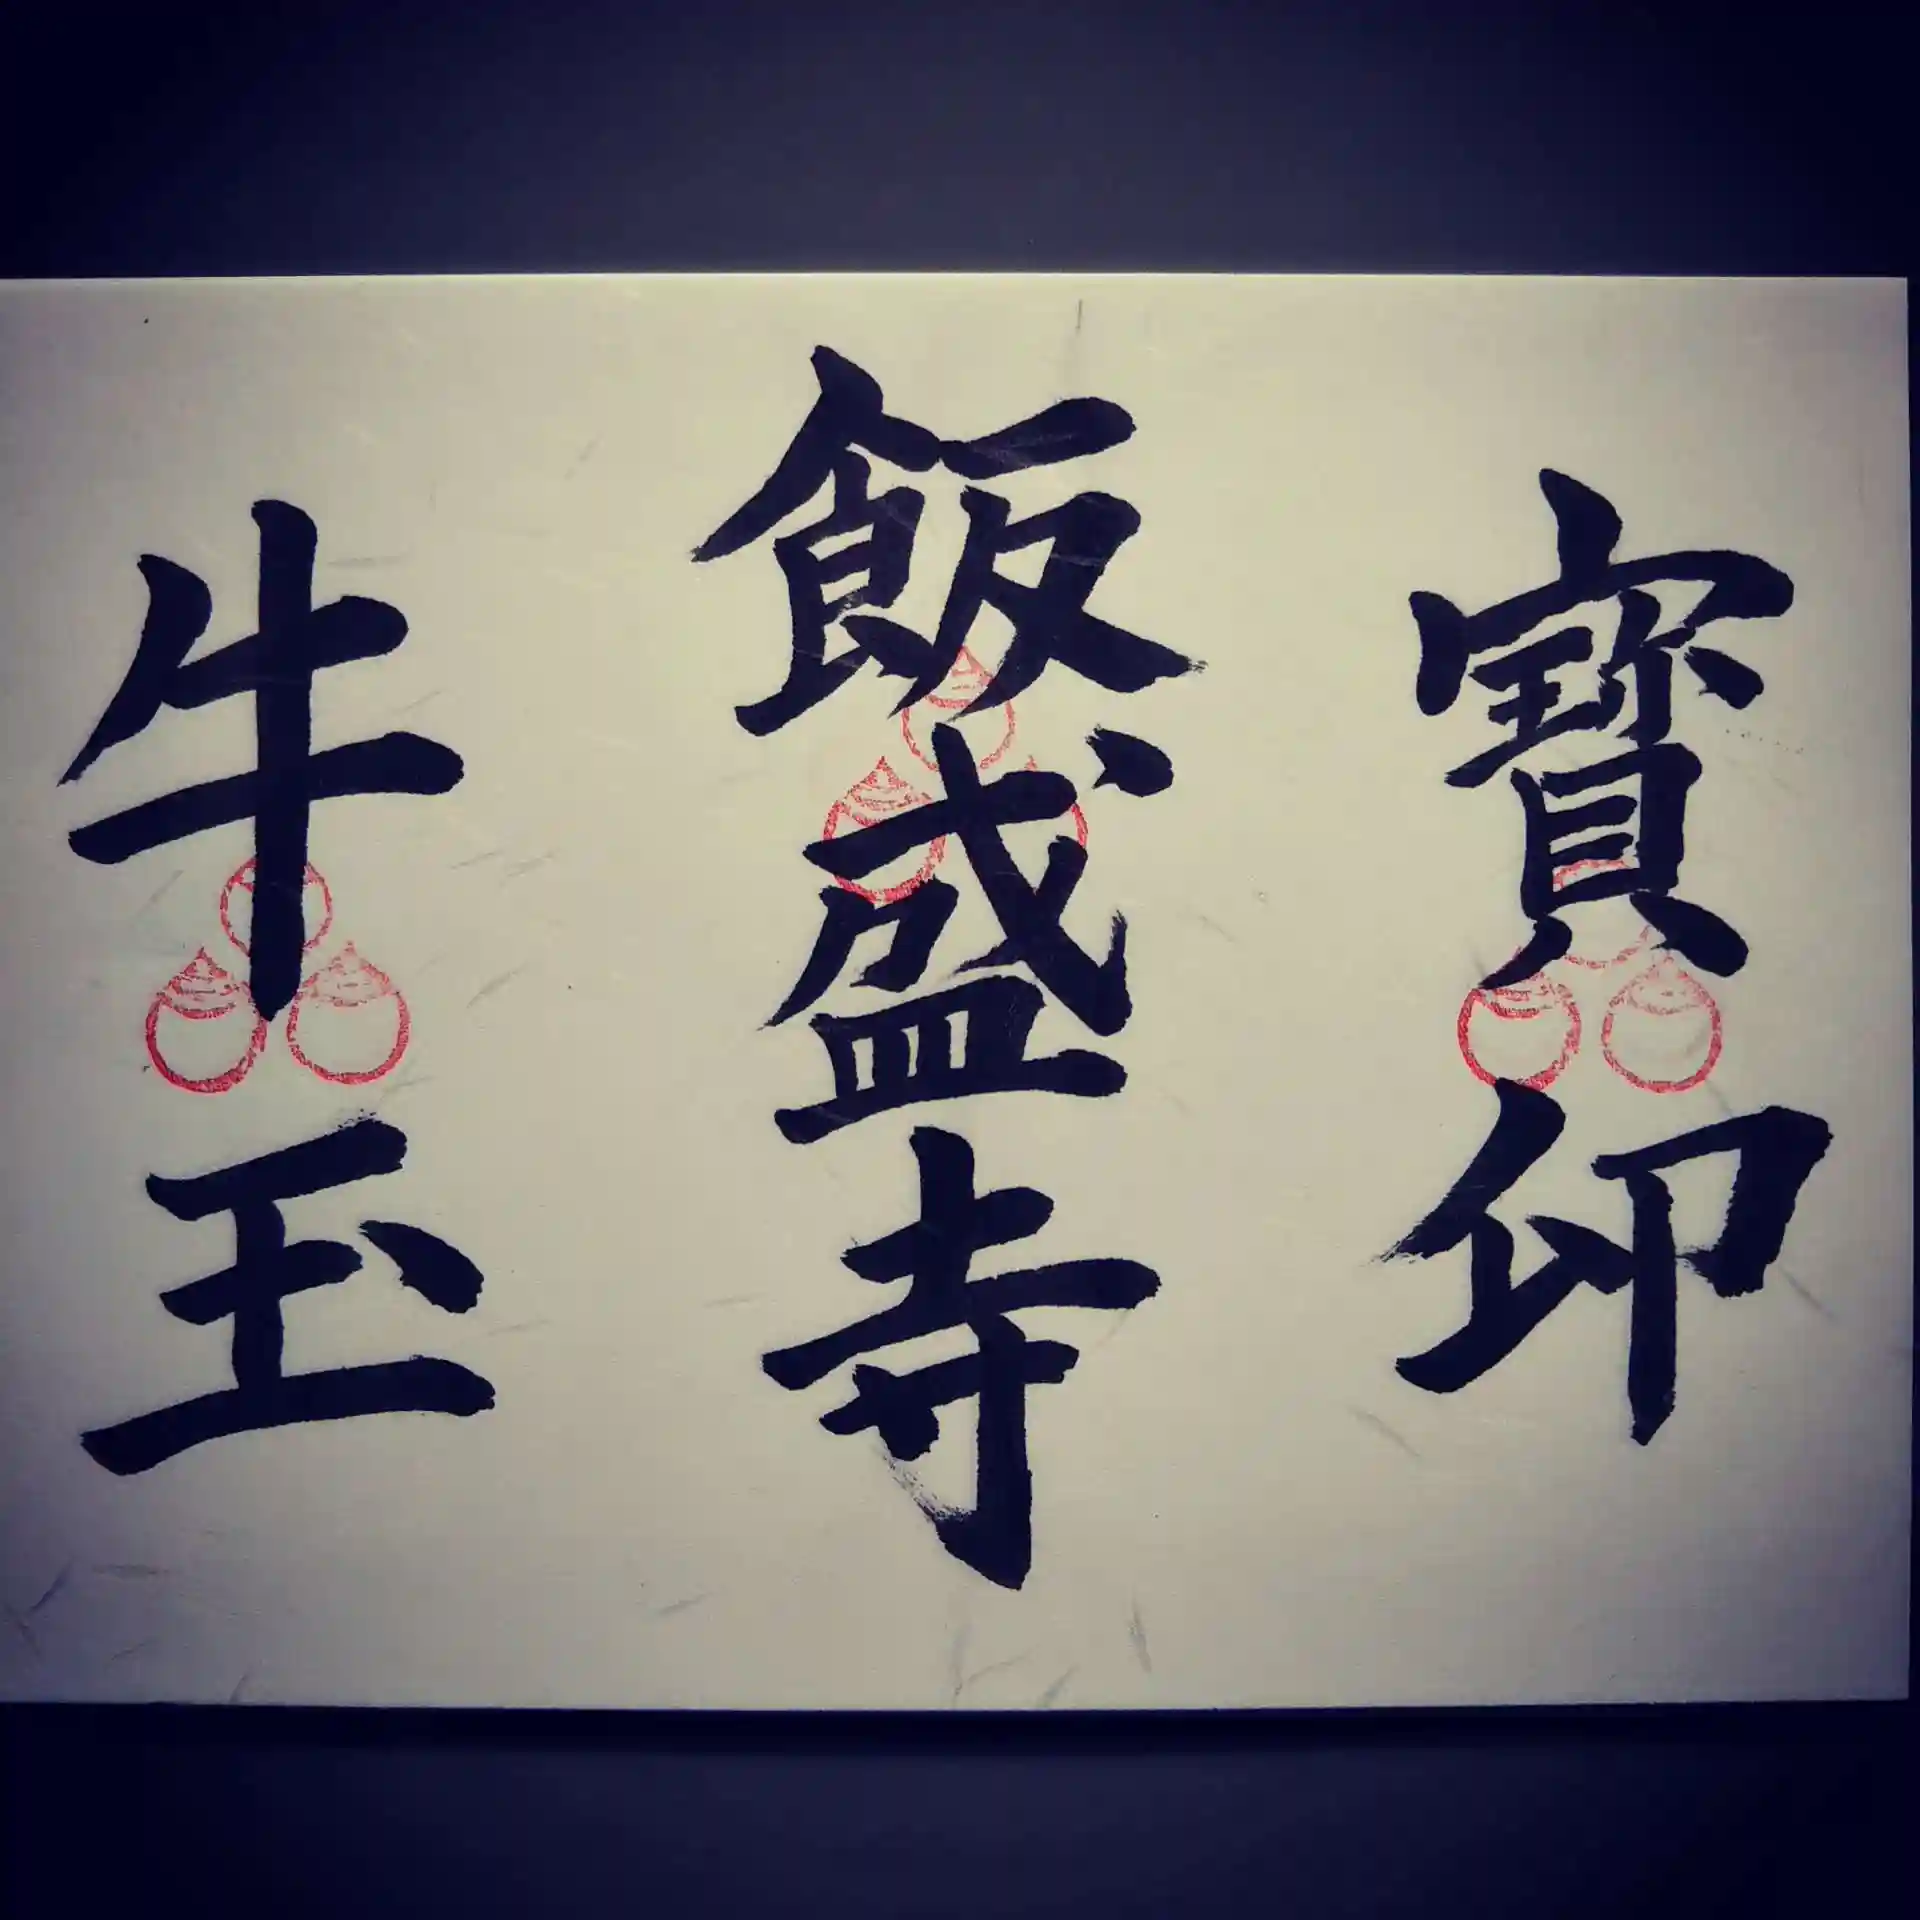 牛玉
飯盛寺
寳印